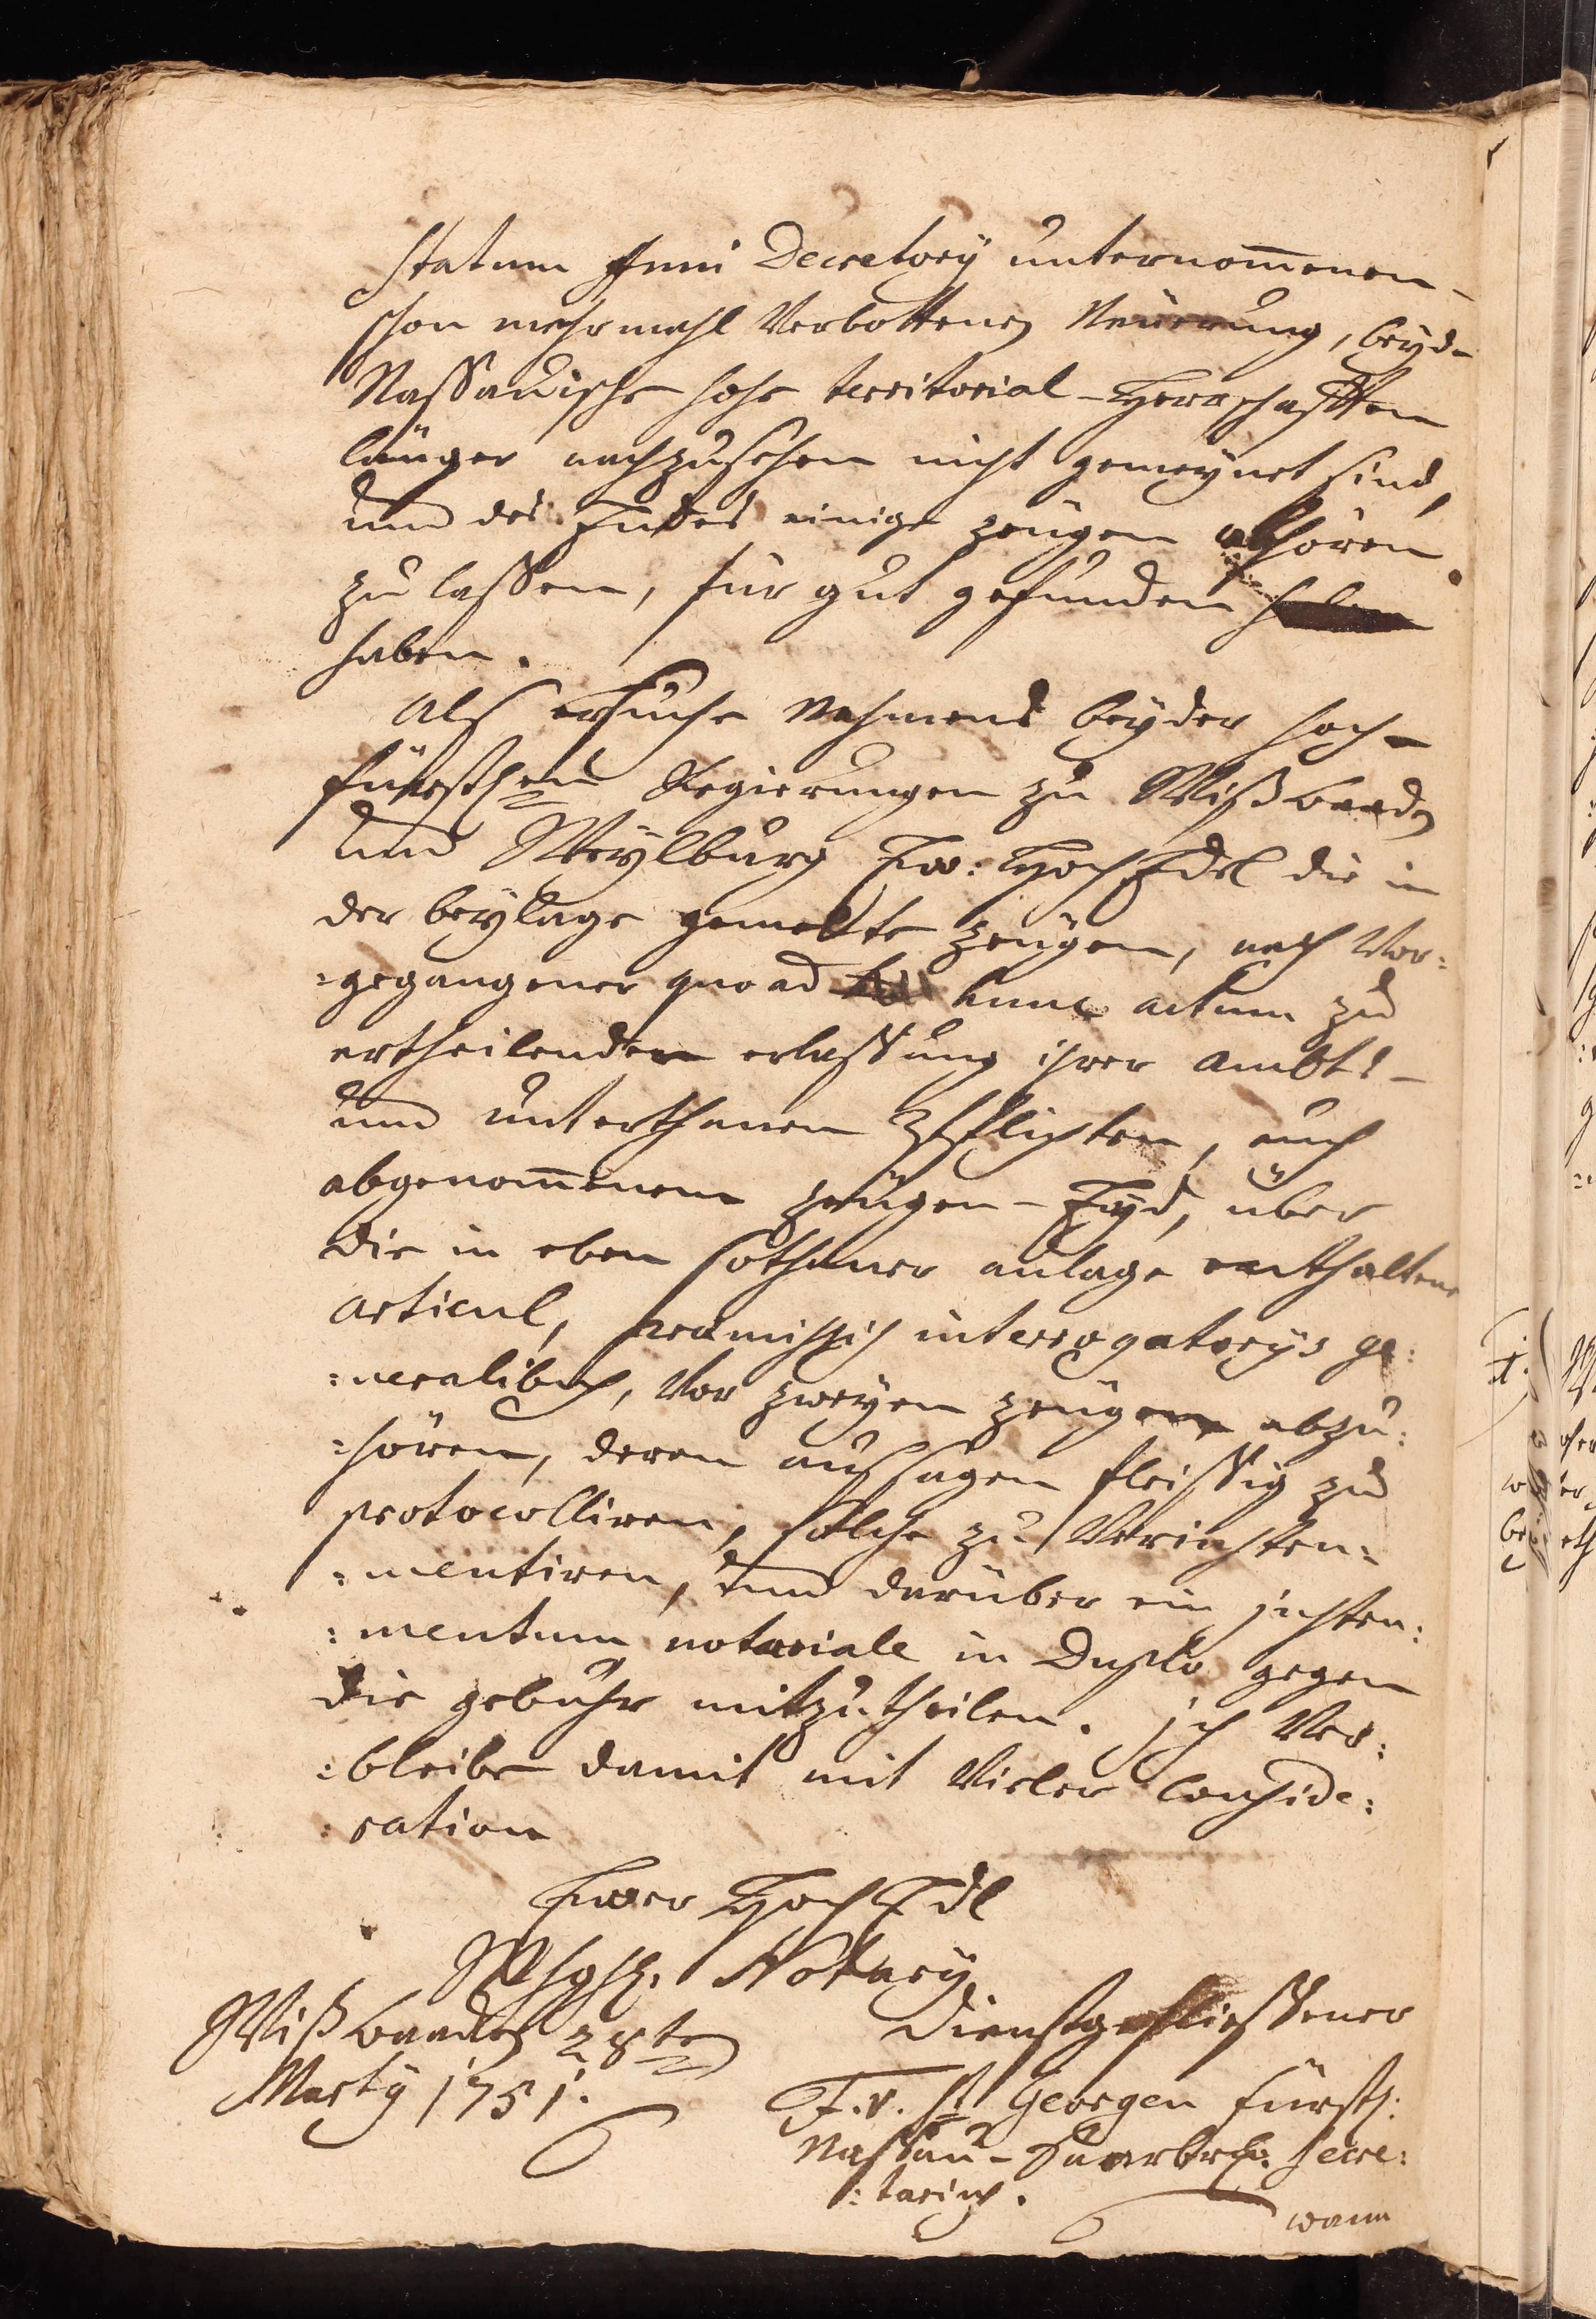 statum Anni Decretorij unternom̄enen
schon mehrmahl Verbottenen Neüerung, beyde
Nassauische hohe territorial-Herrschafften
länger nachzusehen nicht gemeynet sind,
und des Endes einige zeügen abhören
zu lassen, für gut gefunden
haben.
Als ersuche Nahmens beyder hoch-
fürstlen Regierungen zu Wißbaaden
und Weylburg Ew: HochEdel die in
der beylage gemelte zeügen, nach Vor:
:gegangener quoad hunc actum zu
ertheilenden erlassung ihrer Ambts-
und unterthanen Pflichten, auch
abgenom̄enem zeügen-Eyd, über
die in eben sothaner anlage enthaltene
articul, præmissis interrogatorijs ge:
:neralibus, Vor zweyen zeügen abzu:
:hören, deren aussagen fleissig zu
protocolliren, solche zu Verinstru:
:mentiren, und darüber ein instru:
:mentum notariale in Duplo gegen
die gebühr mitzutheilen. ich Ver:
:bleibe damit mit Vieler conside:
:ration
Ewer HochEdl
Notary
Wißbaaden 28ten
Marty 1751.
Dienstgeflissener
F. v. St Georgen fürstl:
Nassau-Saarbrck. secre:
:tarius.
wann